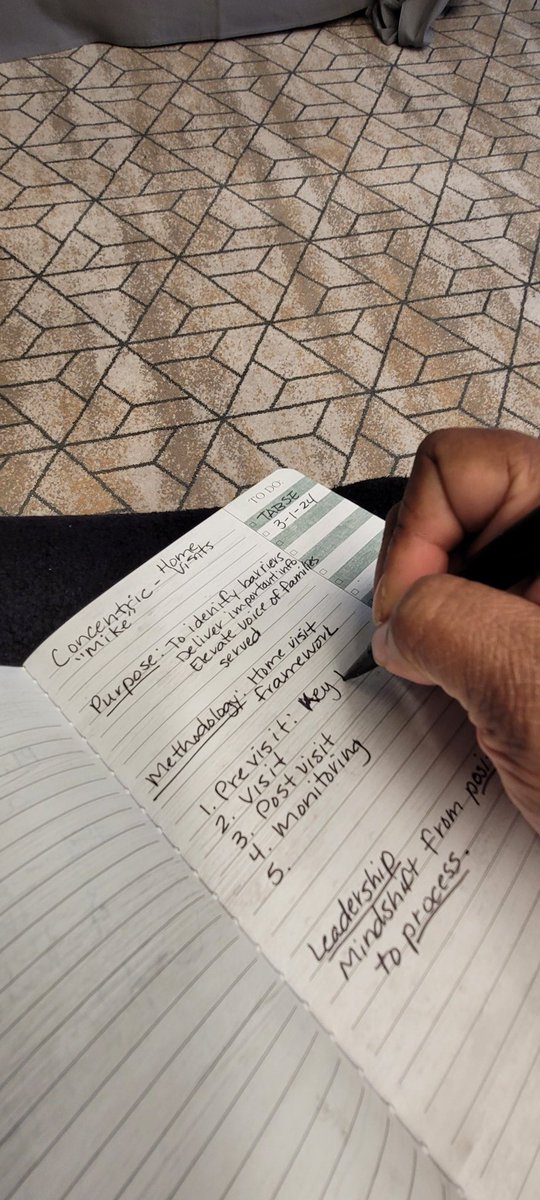 TO DO:
TABSE
3-1-24
Concentric - Home
Visits
"Mike"
Purpose: To idenify barriers
Deliver important info
Elevate voice of families
served
Methodology: Home visit
framework
1. Previsit: Key
2. Visit
3. Post visit
4. Monitoring
5.
Leadership
Mindshift from
to process.